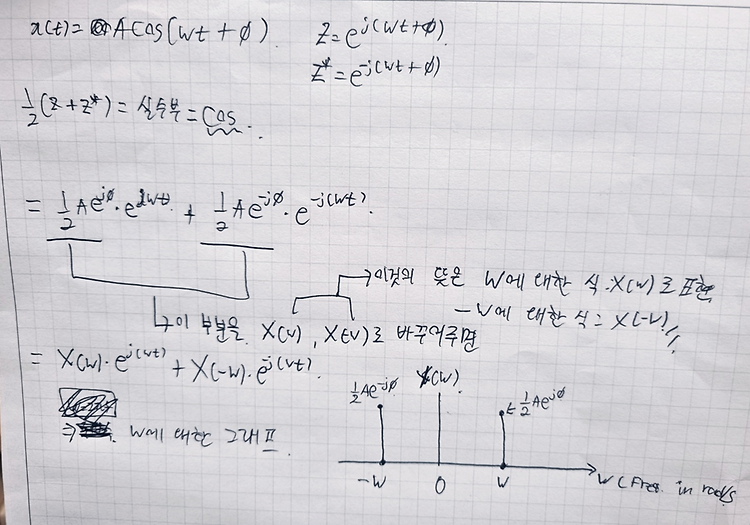 x(t) = A cos(wt + ø)
z = e^{j(wt+ø)}
z* = e^{-j(wt+ø)}
½(z + z*) = 실수부 = cos
= ½Ae^{jø}·e^{jwt} + ½Ae^{-jø}·e^{-j(wt)}
→이것의 뜻은 w에 대한 식 - X(w)로 표현
-w에 대한 식 = X(-w)
↳이 부분을 X(w), X(-w)로 바꾸어주면
= X(w)·e^{j(wt)} + X(-w)·e^{-j(wt)}
⇒ w에 대한 그래프
X(w)
½Ae^{-jø}
½Ae^{jø}
-w 0 w
w (Freq. in rad/s